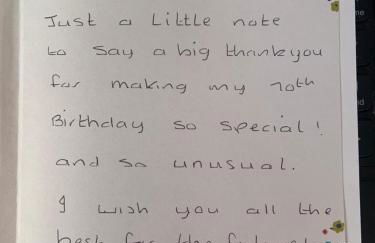 Just a Little note
to say a big thankyou
for making my 70th
Birthday so special!
and so unusual.
I wish you all the
best for